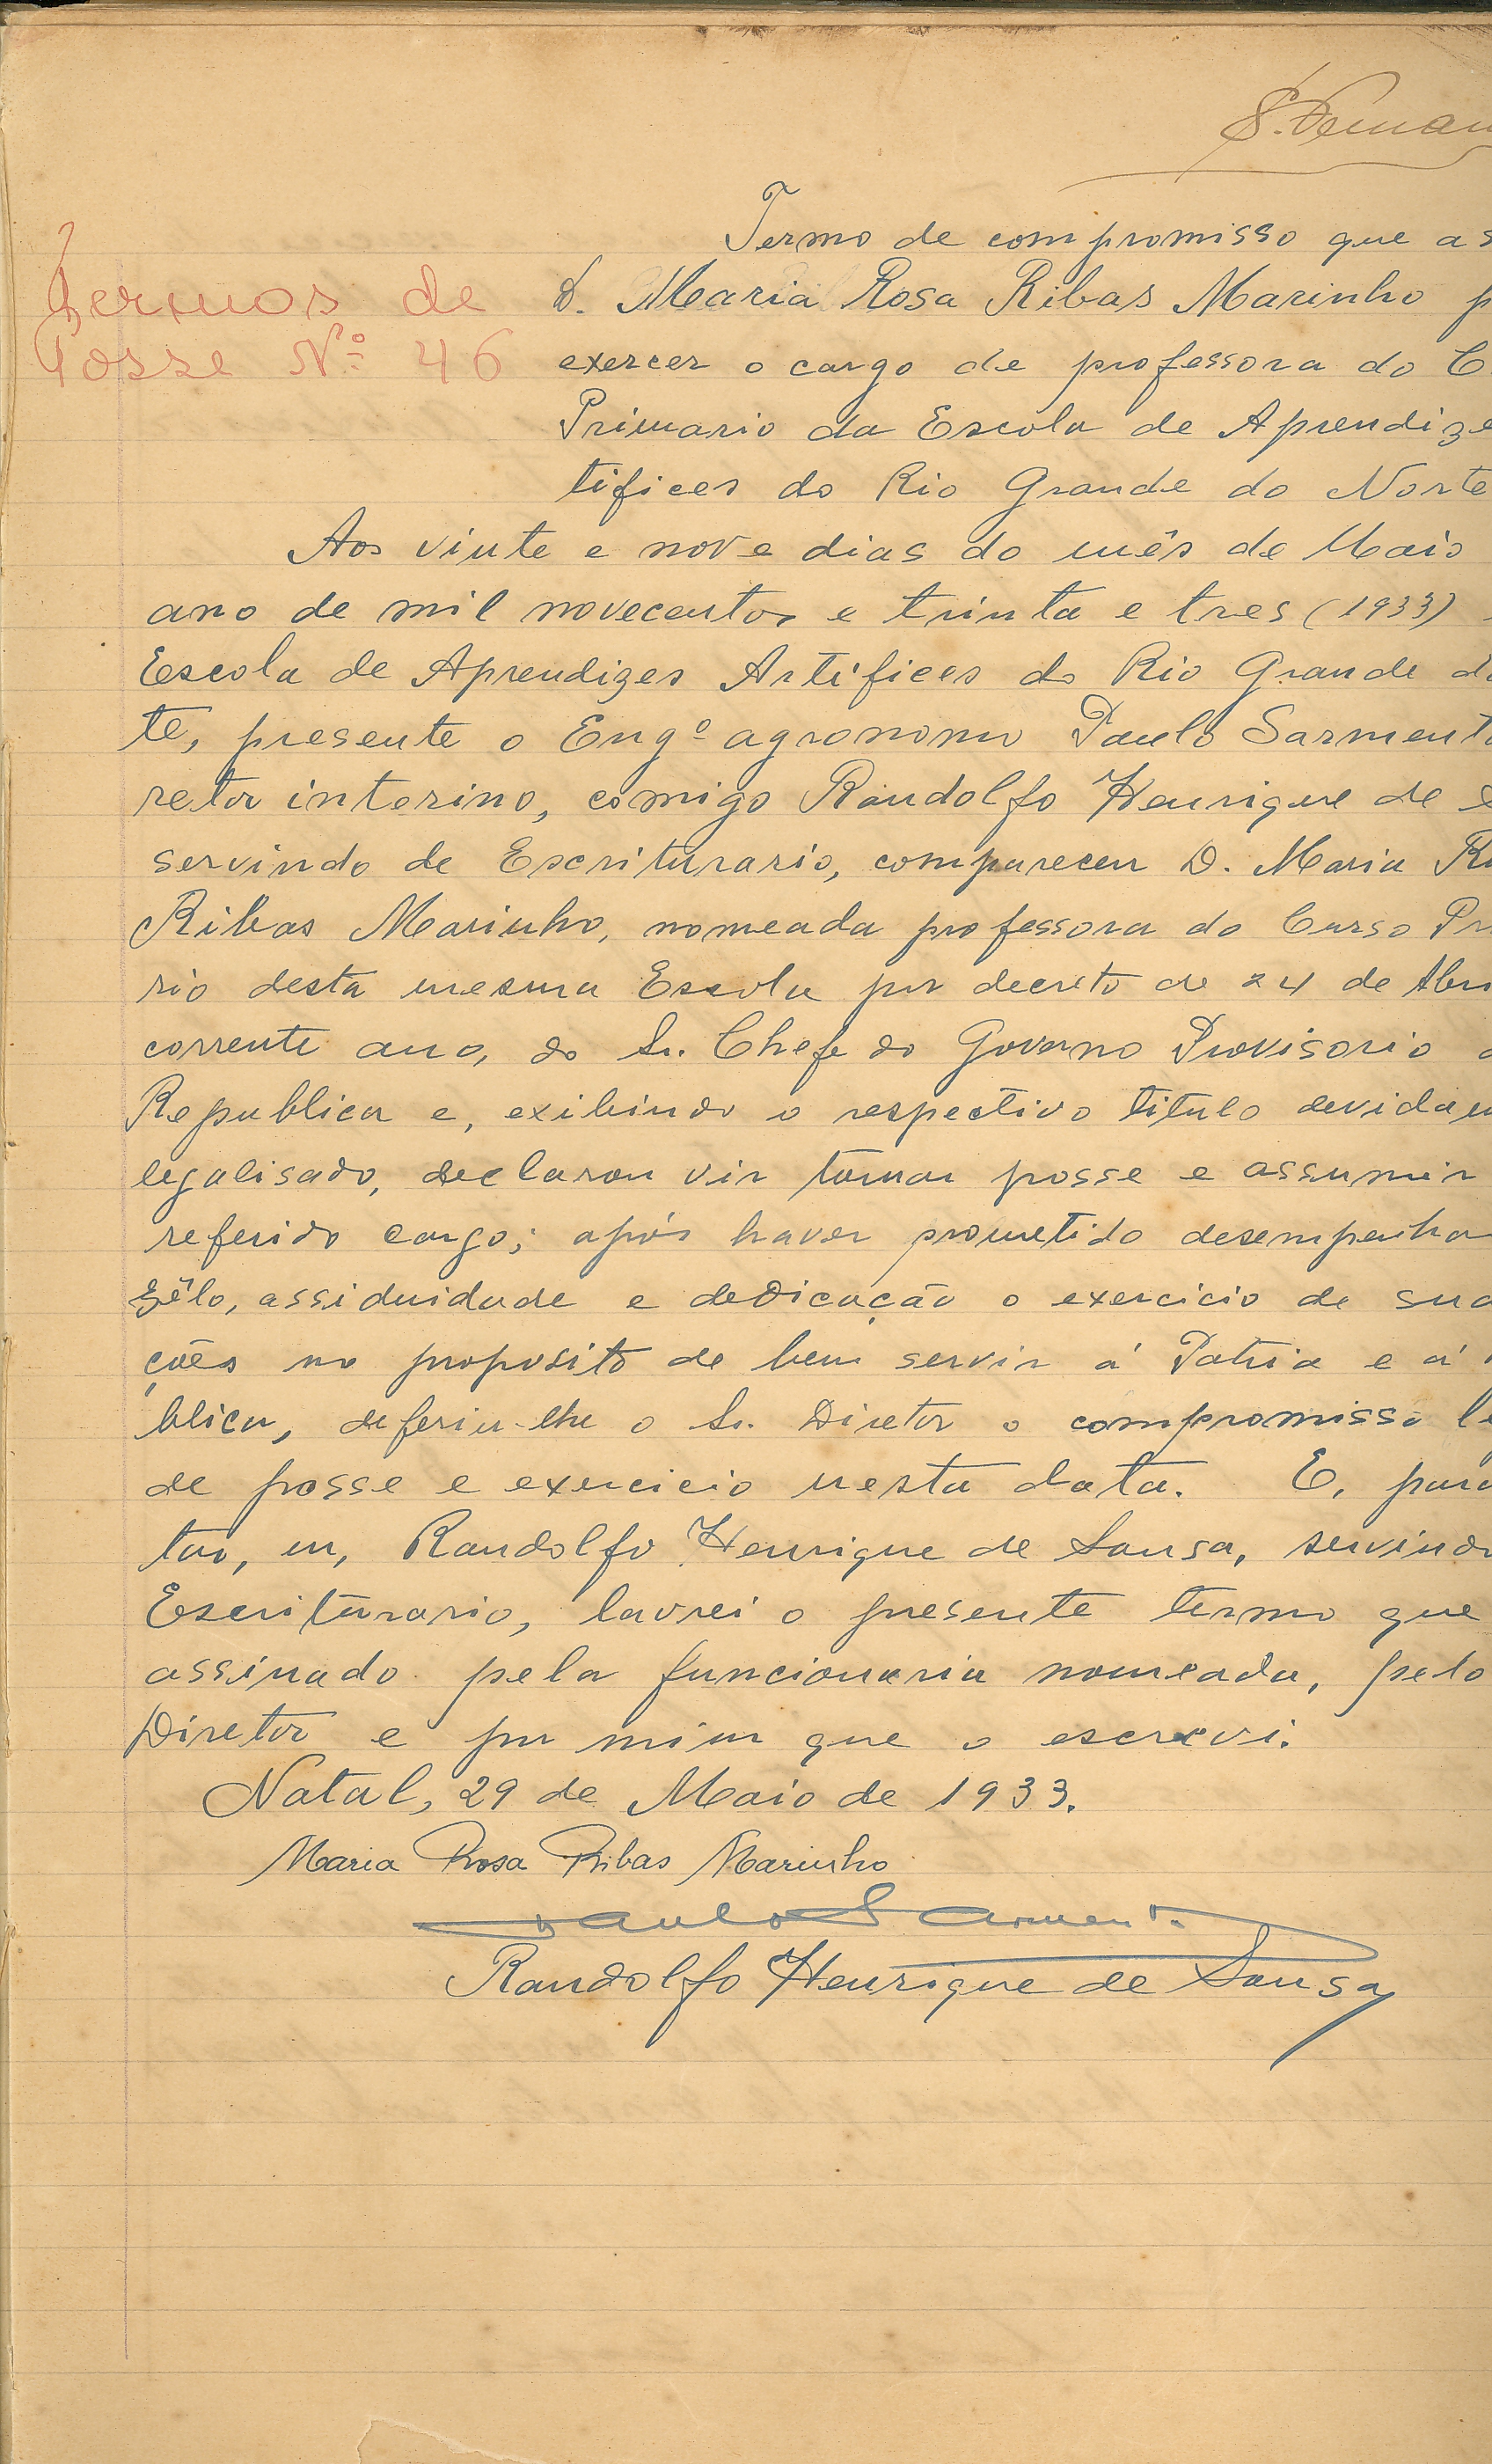 S. Fernan
Termo de compromisso que as
Termos de
Posse Nº 46
D. Maria Rosa Ribas Marinho p
exercer o cargo de professora do C
Primario da Escola de Aprendize
tifices do Rio Grande do Norte
Aos vinte e nove dias do mês de Maio
ano de mil novecentos e trinta e tres (1933)
Escola de Aprendizes Artifices do Rio Grande do
te, presente o Engº agronomo Paulo Sarmento
retor interino, comigo Randolfo Henrique de
servindo de Escriturario, compareceu D. Maria Ro
Ribas Marinho, nomeada professora do Curso Pri
rio desta mesma Escola por decreto de 24 de Abri
corrente ano, do Sr. Chefe do Governo Provisorio
Republica e, exibindo o respectivo titulo devidam
legalisado, declarou vir tomar posse e assumir
referido cargo; após haver prometido desempenha
zêlo, assiduidade e dedicação o exercicio de sua
ções no proposito de bem servir á Patria e á
blica, deferiu-lhe o Sr. Diretor o compromisso le
de posse e exercicio nesta data. E, para
tar, eu, Randolfo Henrique de Sousa, servindo
Escriturario, lavrei o presente termo que
assinado pela funcionaria nomeada, pelo
Diretor e por mim que o escrevi.
Natal, 29 de Maio de 1933.
Maria Rosa Ribas Marinho
Paulo Sarmento
Randolfo Henrique de Sousa